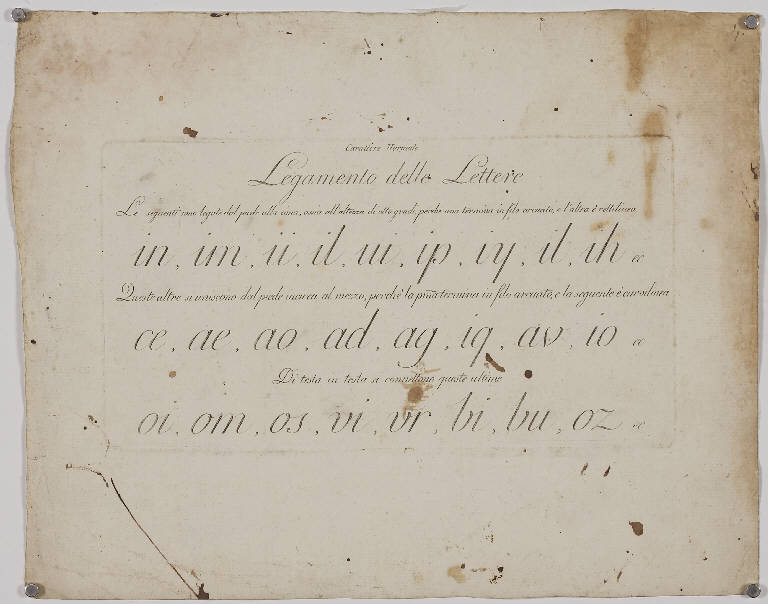 Carattere Corsivo
Legamento delle Lettere
Le seguenti sono legate dal piede alla cima, ossia all'altezza di otto gradi, perche una termina in filo arcuato, e l'altra è rettilinea
in, im, ii, il, iu, ip, iy, il, ih &c
Queste altre si uniscono dal piede incirca al mezzo, perchè la pma termina in filo arcuato, e la seguente è curvilinea
ce, ae, ao, ad, ag, iq, av, io &c
Di testa in testa si connettono queste ultime
oi, om, os, vi, vr, bi, bu, oz &c